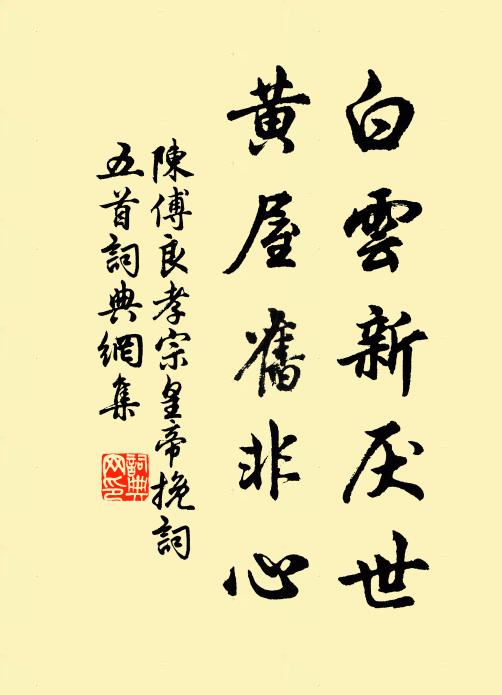 白雲新厌世
黄屋舊非心
陳傅良孝宗皇帝挽詞
五首詞典網集
詞典网印